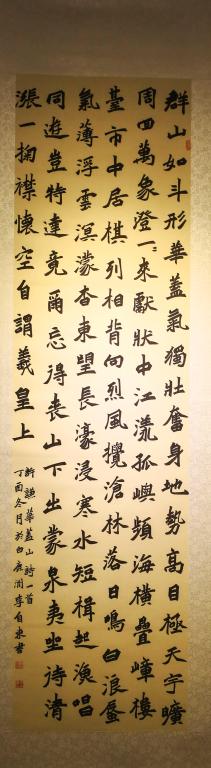 群山如斗形華蓋氣獨壯奮身地勢高目極天宇曠
周四萬象澄一一來獻狀中江漾孤嶼頻海橫疊嶂樓
臺市中居棋列相背向烈風攪滄林落日鳴白浪蜃
氣薄浮雲溟濛杳東望長濠浸寒水短楫起漁唱
同遊豈特達竟爾忘得喪山下出蒙泉夷坐待清
漲一掬襟懷空自謂羲皇上
華蓋山詩一首
丁酉冬月於白鹿洞李自來書